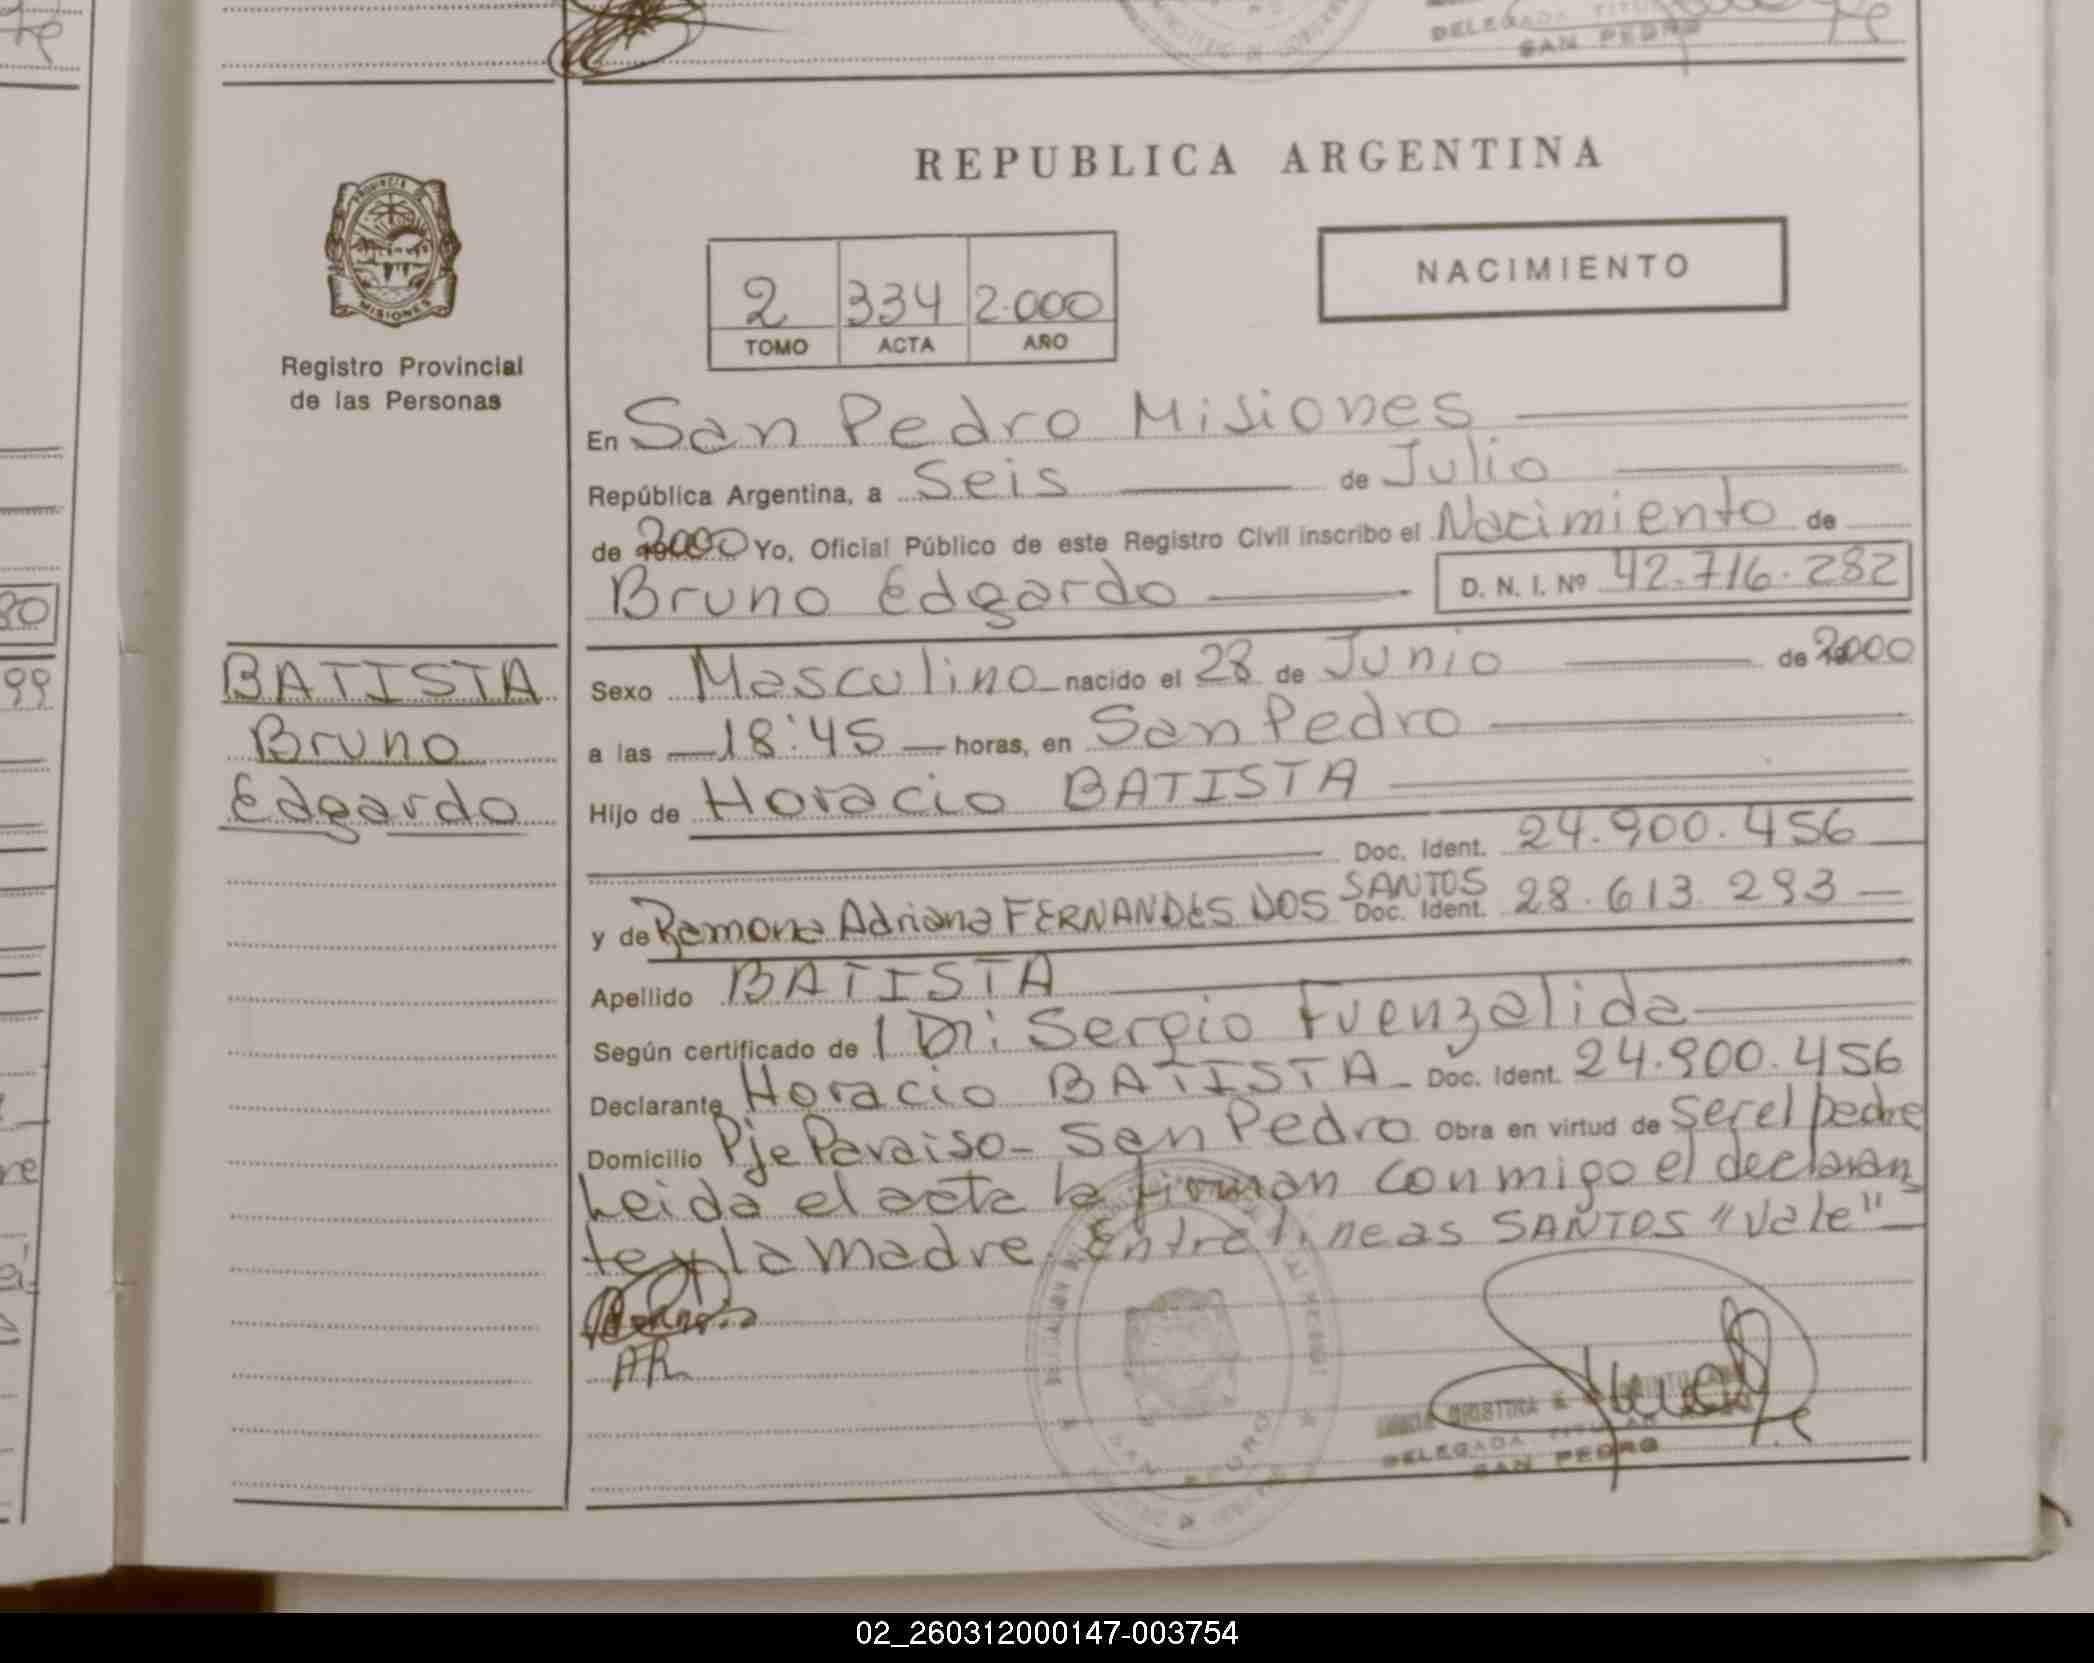 DELEGADA TITULAR
SAN PEDRO
PROVINCIA DE
MISIONES
Registro Provincial
de las Personas
REPUBLICA ARGENTINA
2 334 2.000
TOMO ACTA AÑO
NACIMIENTO
En San Pedro Misiones
República Argentina, a Seis de Julio
de 2000 Yo, Oficial Público de este Registro Civil inscribo el Nacimiento de
Bruno Edgardo D. N. I. Nº 42.716.282
BATISTA
Bruno
Edgardo
Sexo Masculino nacido el 28 de Junio de 2000
a las 18:45 horas, en San Pedro
Hijo de Horacio BATISTA
Doc. Ident. 24.900.456
SANTOS
y de Ramona Adriana FERNANDES DOS Doc. Ident. 28.613.293
Apellido BATISTA
Según certificado de Dr: Sergio Fuenzalida
Declarante Horacio BATISTA Doc. Ident. 24.900.456
Domicilio Pje Paraiso - San Pedro Obra en virtud de ser el padre
Leida el acta la firman conmigo el declaran
te y la madre. Entre lineas SANTOS "Vale"
AR
CRISTINA
DELEGADA TITULAR
SAN PEDRO
80
99
02_260312000147-003754